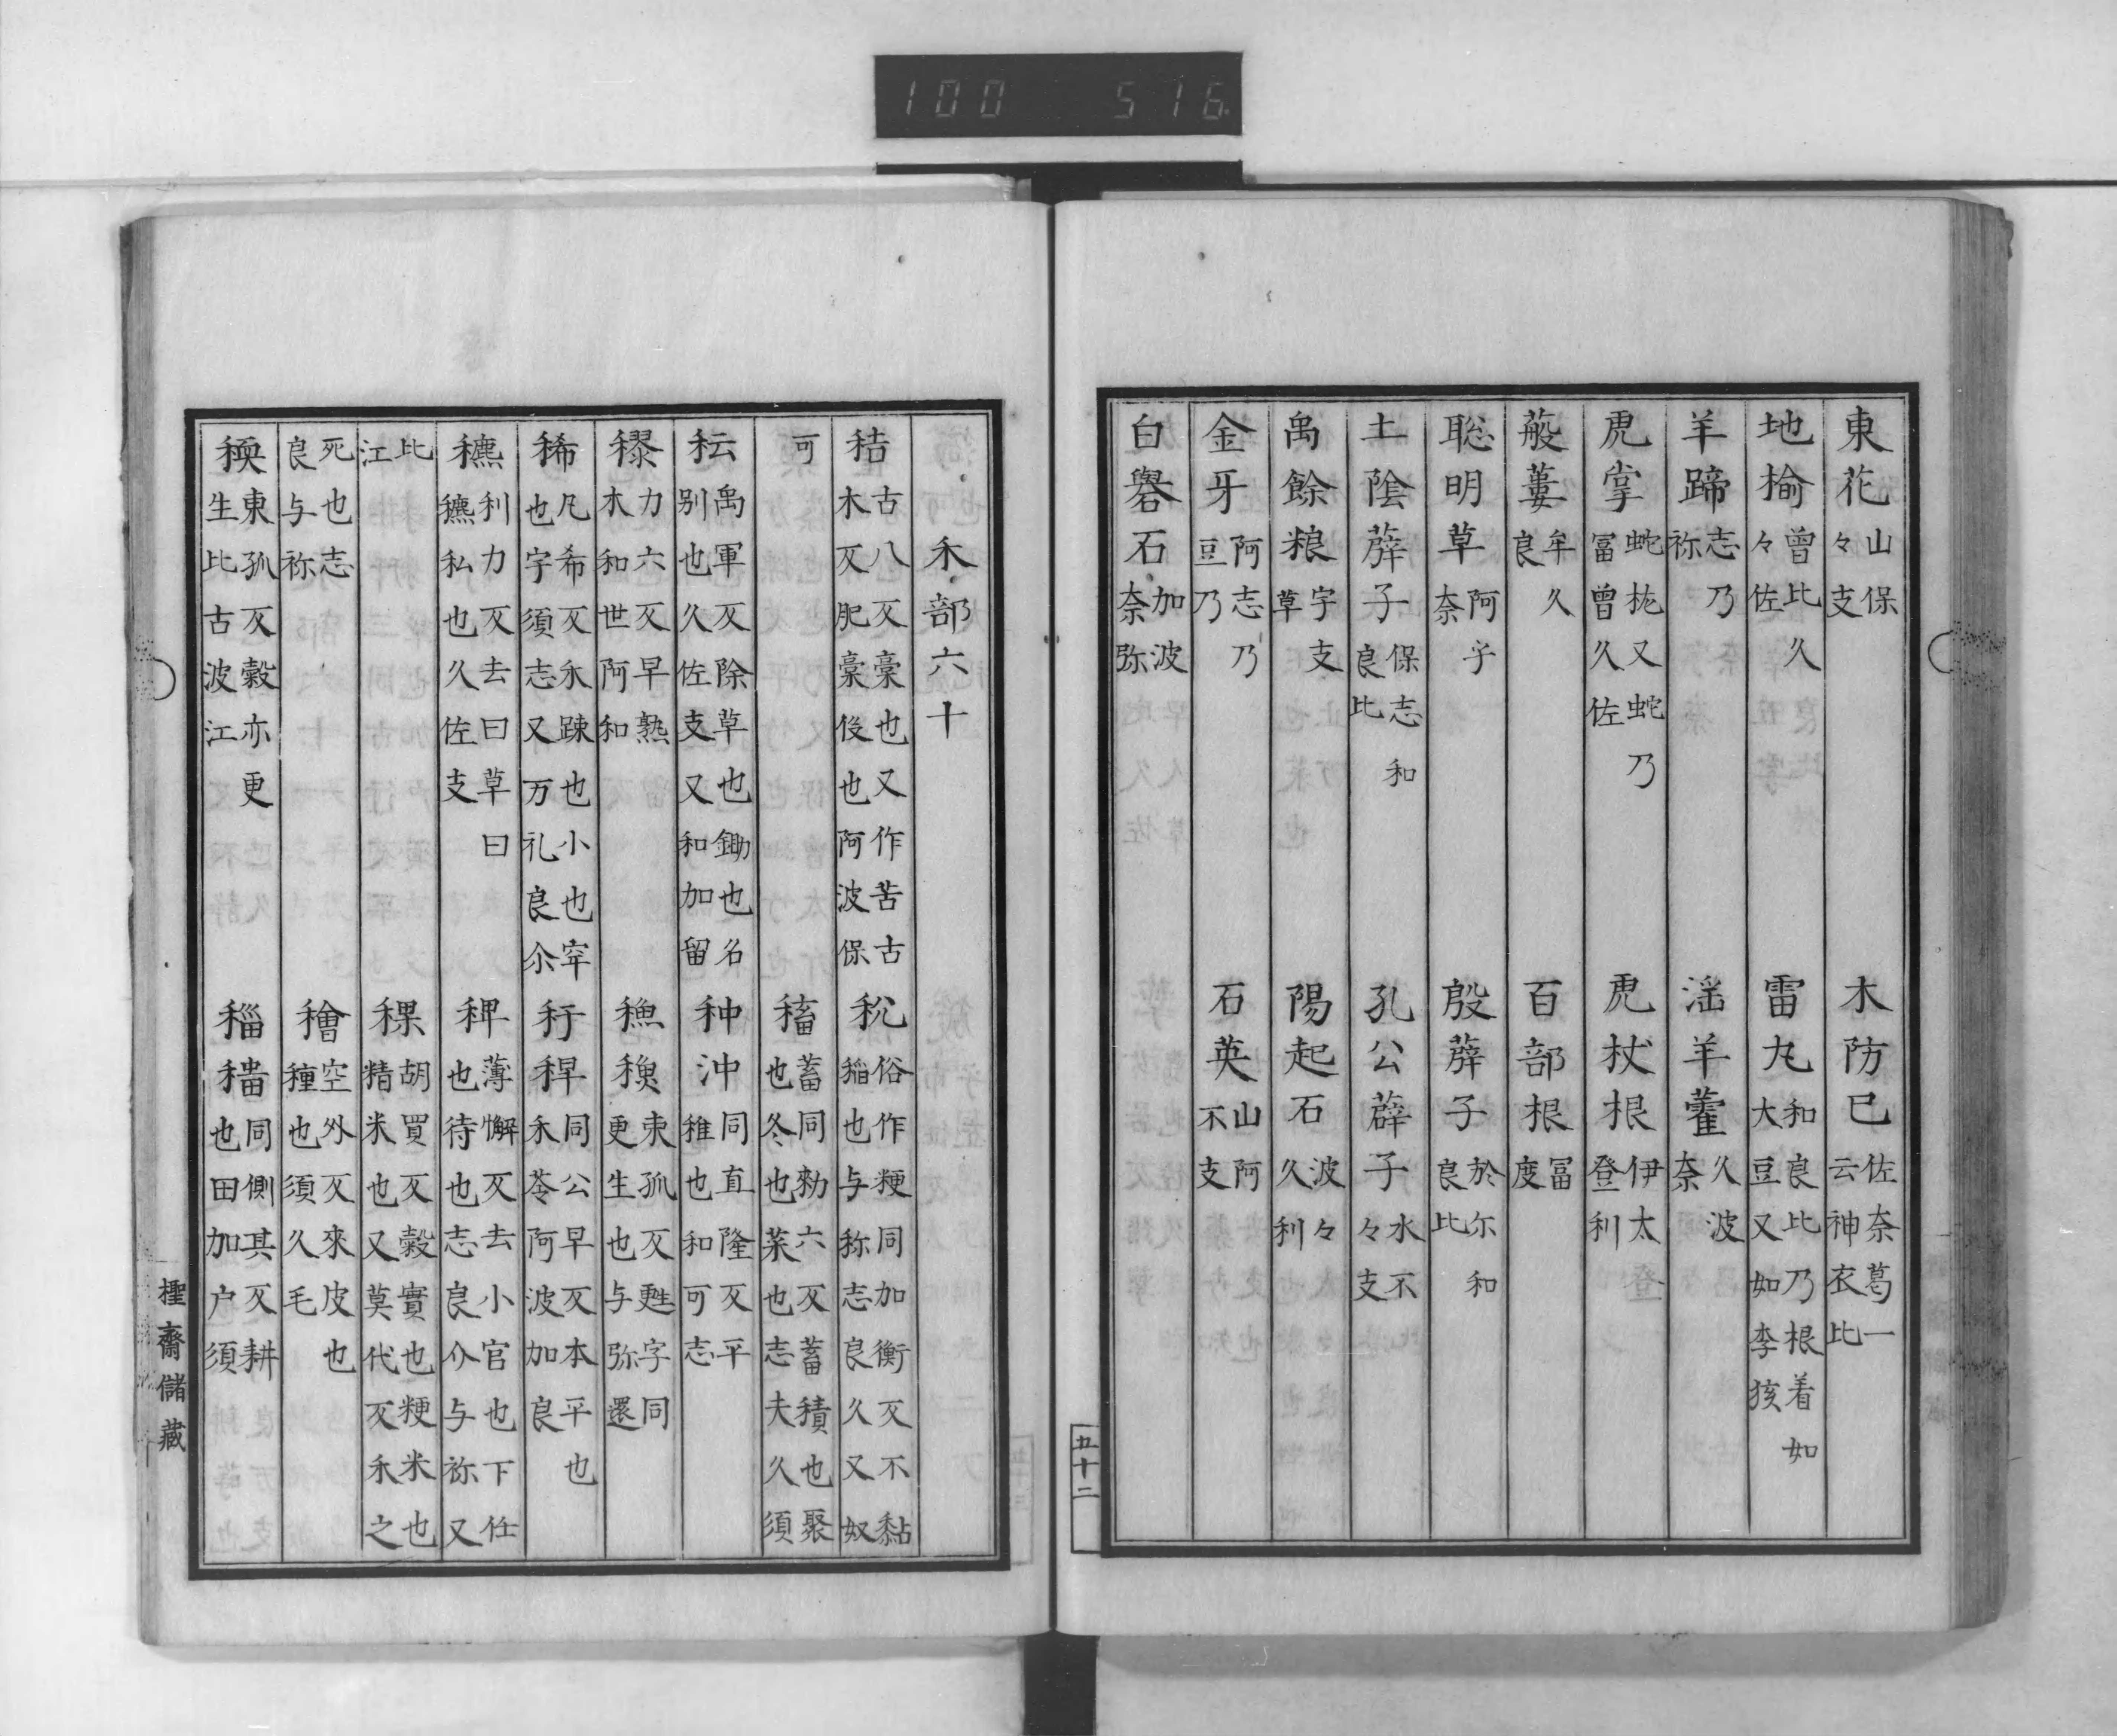 100 516
東花山保々支 木防巳佐奈葛一云神衣比
地楡曽比久々佐 雷丸和良比乃根着如大豆又如李㹢
羊蹄志乃祢 滛羊藿久波奈
虎掌蛇枇又蛇乃冨曽久佐 虎杖根伊太登利
䓯蔞牟久良 百部根冨度
聡明草阿字奈 殷薜子於尓和良比
土陰薜子保志和良比 孔公薜子水不々支
禹餘粮字支草 陽起石波々久利
金牙阿志乃豆乃 石英山阿不支
白礜石加波奈弥
五十二
禾部六十
秸古八反稾也又作苦古木反肥稾役也阿波保 秔俗作粳同加衡反不黏稲也与祢志良久又奴
可 稸蓄同勑六反蓄積也聚也冬也菜也志夫久須
秐禹軍反除草也鋤也名别也久佐支又和加留 种沖同直隆反平稚也和可志
穋力六反早熟木和世阿和 穌䅵東孤反甦字同更生也与弥還
稀凡希反禾踈也小也罕也字須志又万礼良尒 秆稈同公早反本平也禾荅阿波加良
穮利力反去曰草曰穮私也久佐支 稗薄懈反去小官也下任也待也志良介与祢又
比江 稞胡買反穀實也粳米也精米也又莫代反禾之
死也志良与祢 穭空外反來皮也種也須久毛
䅵東孤反穀亦更生比古波江 䅔穡同側其反耕也田加户須
檉齋儲藏